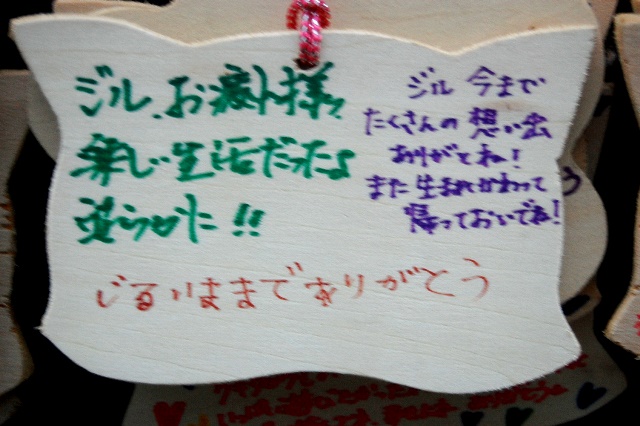 ジル、お疲れ様
楽しい生活だったよ
安らかに!!
ジル 今まで
たくさんの想い出
ありがとね!
また生まれかわって
帰っておいでね!
じるいままでありがとう